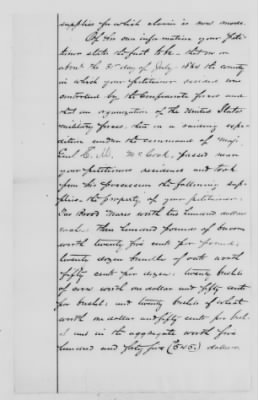 supplies for which claim is now made.
Of his own information your Peti-
tioner states the fact to be - that on or
about the 31st day of July 1864 the county
in which your petitioner resided was
controlled by the Confederate forces and
that an organization of the United States
military forces, then on a raiding expe-
dition under the command of Maj.
Genl E. M. McCook, passed near
your petitioners residence and took
from his possession the following sup-
plies the property of your petitioner:
Two Brood Mares worth two hundred dollars
each. Three hundred pounds of bacon
worth twenty five cents per pound,
twenty dozen bundles of oats worth
fifty cents per dozen. twenty bushels
of corn worth one dollar and fifty cents
per bushel: and twenty bushels of wheat
worth one dollar and fifty cents per bush-
el and in the aggregate worth five
hundred and forty five (545.) dollars